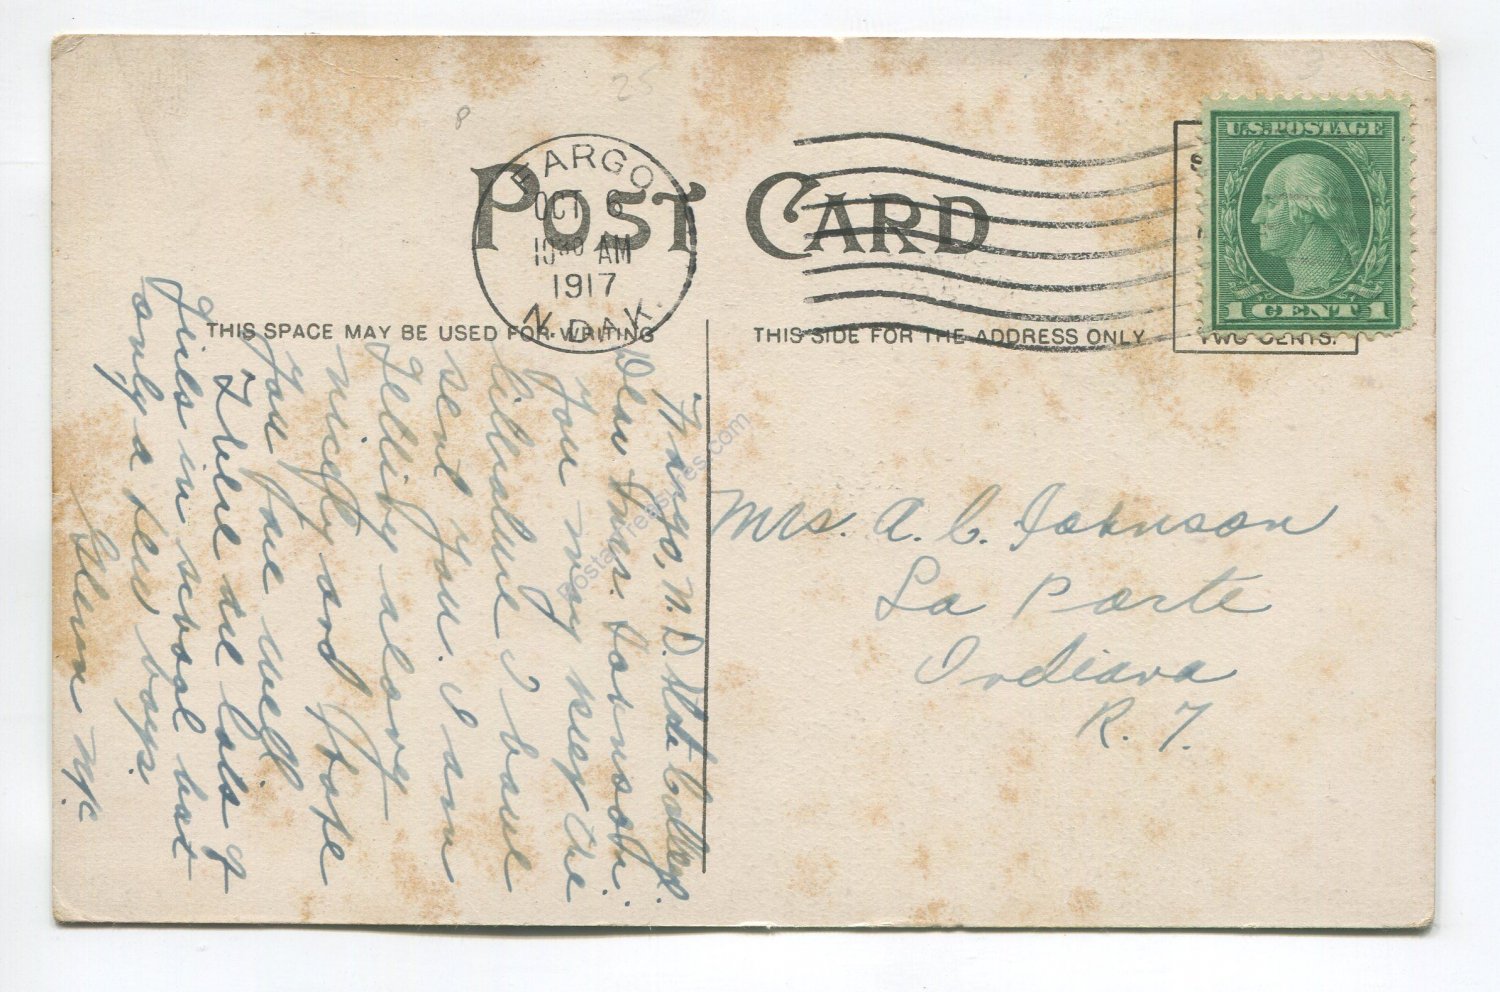 25
P
3
POST CARD
FARGO
OCT 6
10 30 AM
1917
N. DAK.
U.S. POSTAGE
1 CENT 1
TWO CENTS.
THIS SPACE MAY BE USED FOR WRITING
THIS SIDE FOR THE ADDRESS ONLY
Fargo, N. D. State College.
Dear Mrs. Johnson:
You may keep the
litrature I have
sent you. I am
getting along
nicely and hope
you are well
There are lots of
girls in school but
only a few boys.
Glenn Mc
Mrs. A. C. Johnson
La Porte
Indiana
R. 7.
PostalTreasures.com